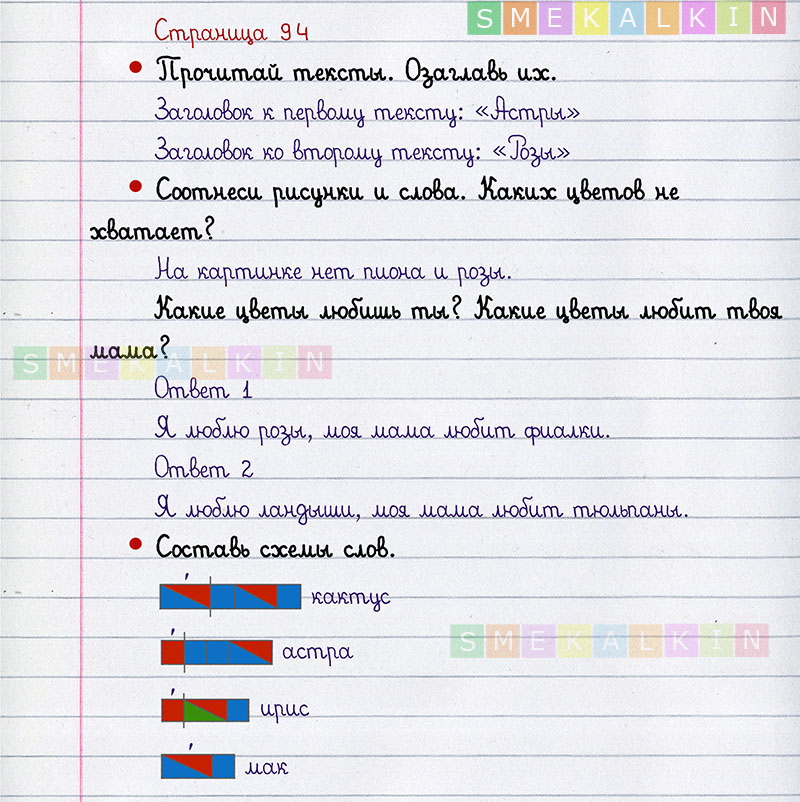 SMEKALKIN
Страница 94
• Прочитай тексты. Озаглавь их.
Заголовок к первому тексту: «Астры»
Заголовок ко второму тексту: «Розы»
• Соотнеси рисунки и слова. Каких цветов не
хватает?
На картинке нет пиона и розы.
Какие цветы любишь ты? Какие цветы любит твоя
мама?
SMEKALKIN
Ответ 1
Я люблю розы, моя мама любит фиалки.
Ответ 2
Я люблю ландыши, моя мама любит тюльпаны.
• Составь схемы слов.
кактус
астра
SMEKALKIN
ирис
мак